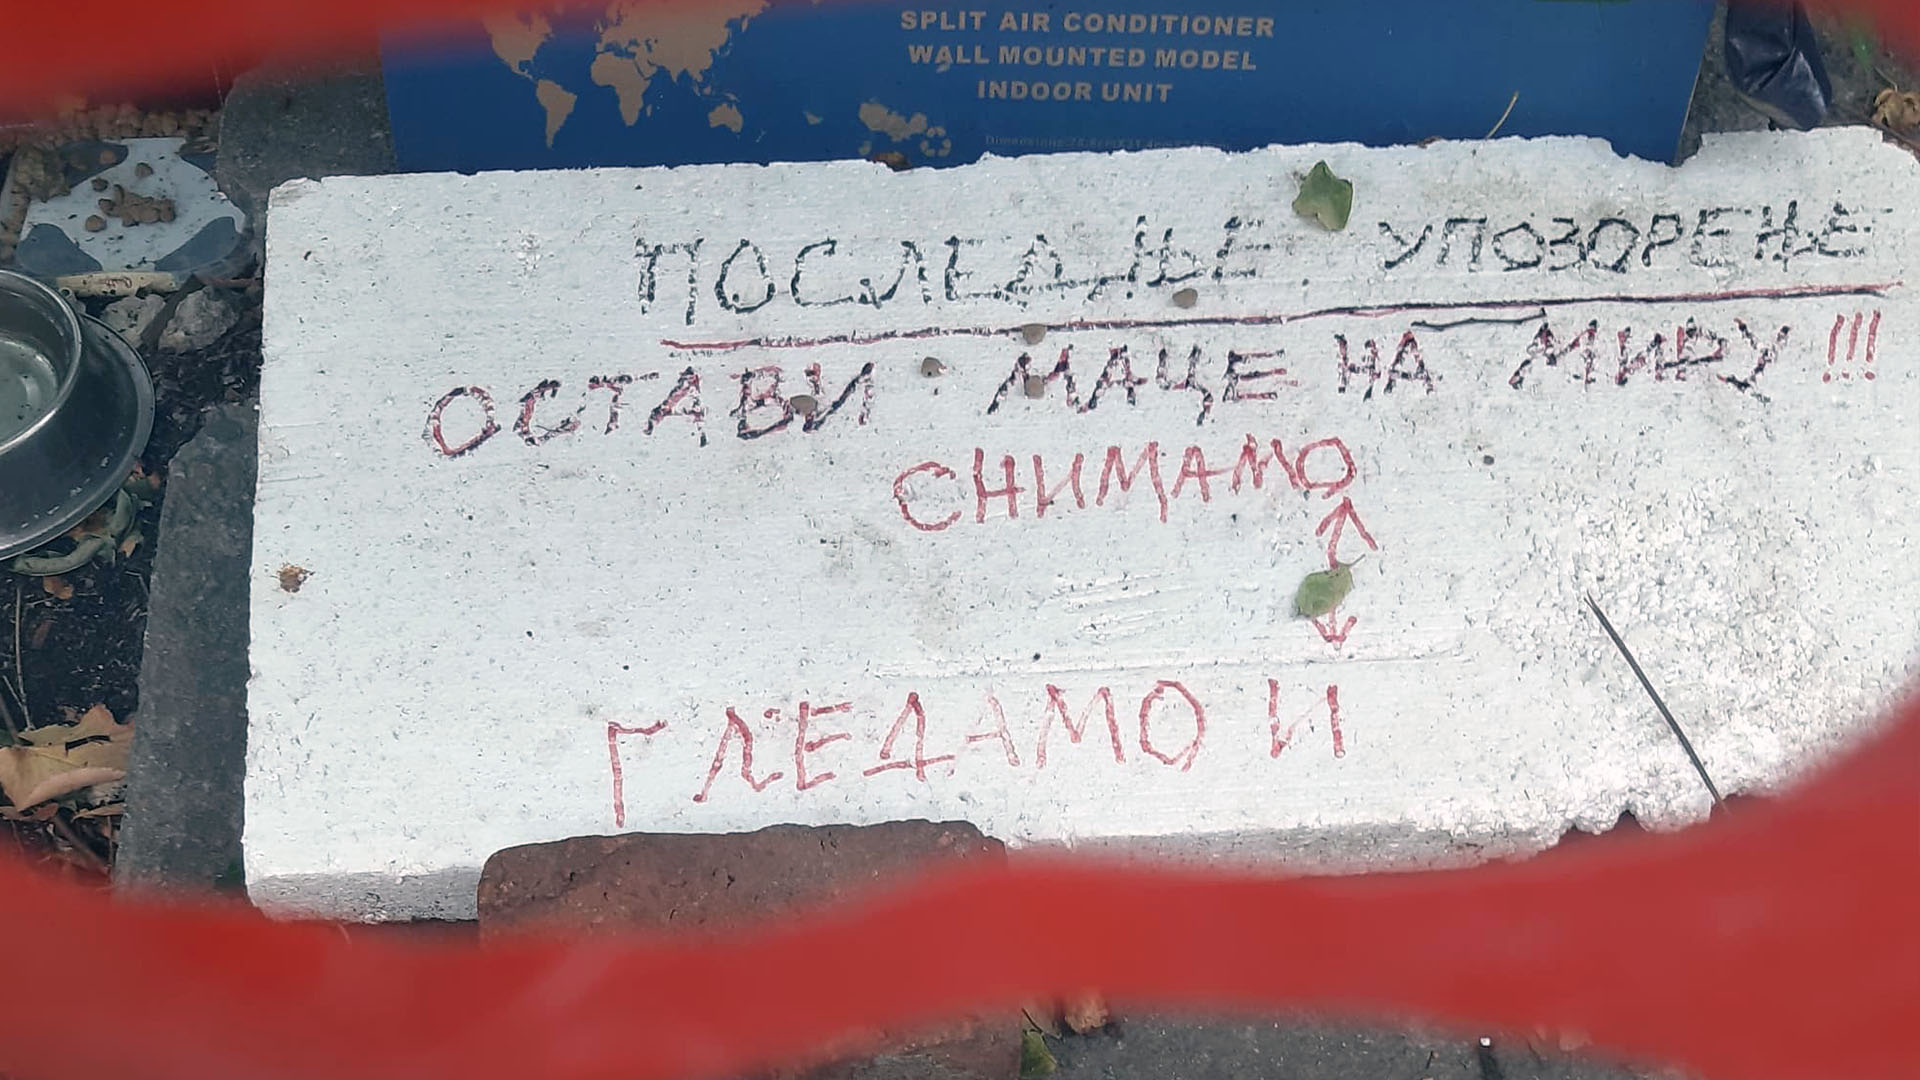 SPLIT AIR CONDITIONER
WALL MOUNTED MODEL
INDOOR UNIT
ПОСЛЕДЊЕ УПОЗОРЕЊЕ
ОСТАВИ МАЦЕ НА МИРУ!!!
СНИМАМО
ГЛЕДАМО И